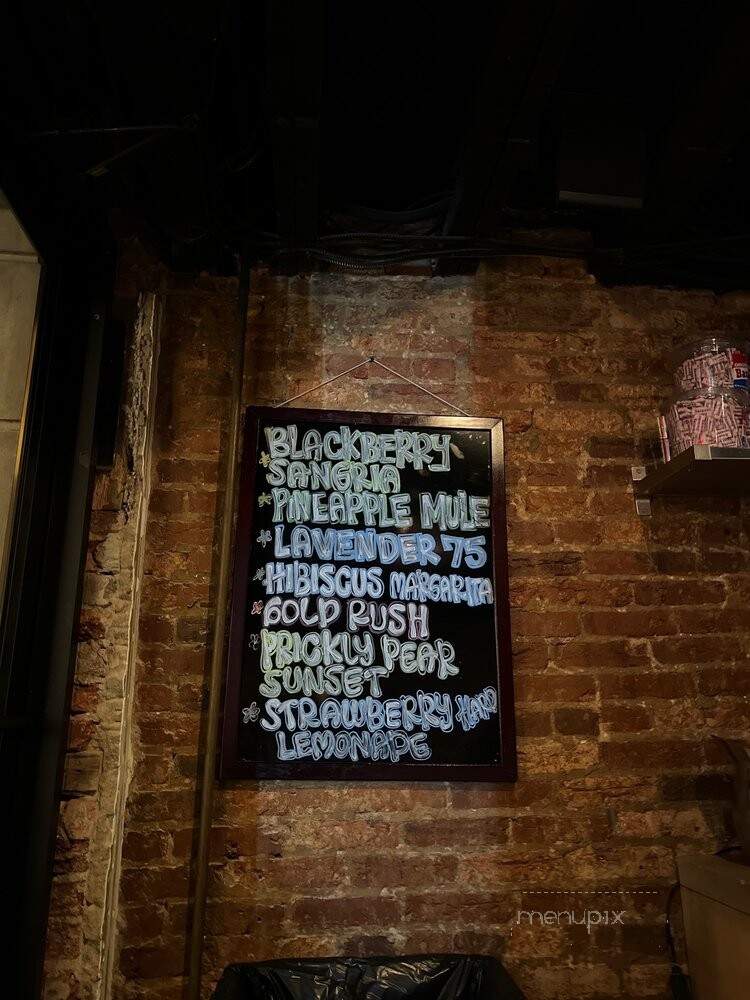 BLACKBERRY
SANGRIA
PINEAPPLE MULE
LAVENDER 75
HIBISCUS MARGARITA
GOLD RUSH
PRICKLY PEAR
SUNSET
STRAWBERRY HARD
LEMONADE
menupix